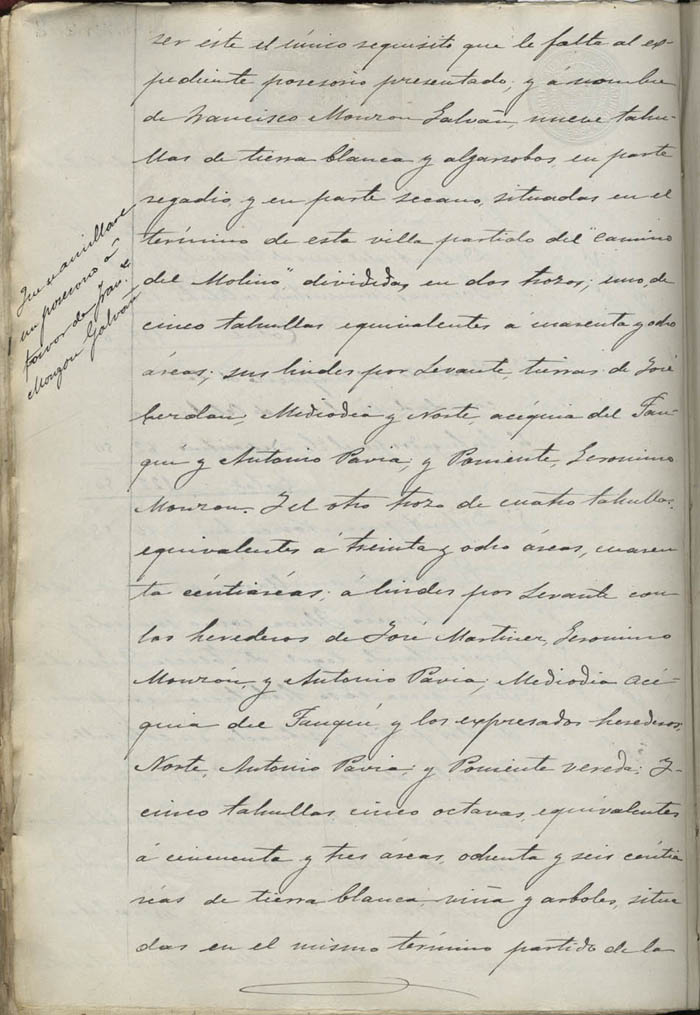 ser éste el único requisito que le falta al ex-
pediente posesorio presentado; y á nombre
de Francisco Monzon Galván, nueve tahu-
llas de tierra blanca y algarrobos, en parte
regadio, y en parte secano, situadas en el
término de esta villa partido del "Camino
del Molino" divididas, en dos trozos; uno, de
cinco tahullas equivalentes á cuarenta y ocho
áreas; sus lindes por Levante, tierras de José
Cerdan; Mediodia y Norte, acéquia del Fau-
quí y Antonio Pavia; y Poniente, Geronimo
Monzon. Y el otro trozo de cuatro tahullas,
equivalentes á treinta y ocho áreas, cuaren
ta céntiaréas; á lindes por Levante con
los herederos de José Martinez, Geronimo
Monzón, y Antonio Pavia; Mediodia acé-
quia del Fauquí y los expresados herederos;
Norte, Antonio Pavia; y Poniente vereda; Y-
cinco tahullas cinco octavas, equivalentes
á cincuenta y tres áreas, ochenta y seis céntia
réas de tierra blanca, viña y arboles, situa
das en el mismo término partido de la
Que se amillare
un posesorio á
favor de Fran.co
Monzon Galván